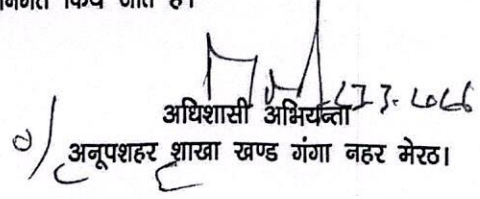 किये जाते है।
अधिशासी अभियन्ता
अनूपशहर शाखा खण्ड गंगा नहर मेरठ।